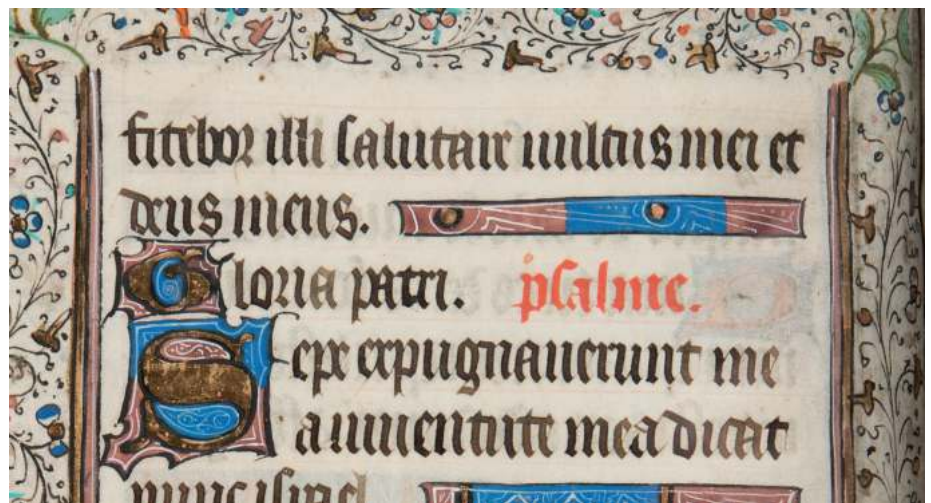 fitebor illi salutare uultus mei et
deus meus.
Gloria patri. psalme.
Sepe expugnauerunt me
a iuuentute mea dicat
nunc israel